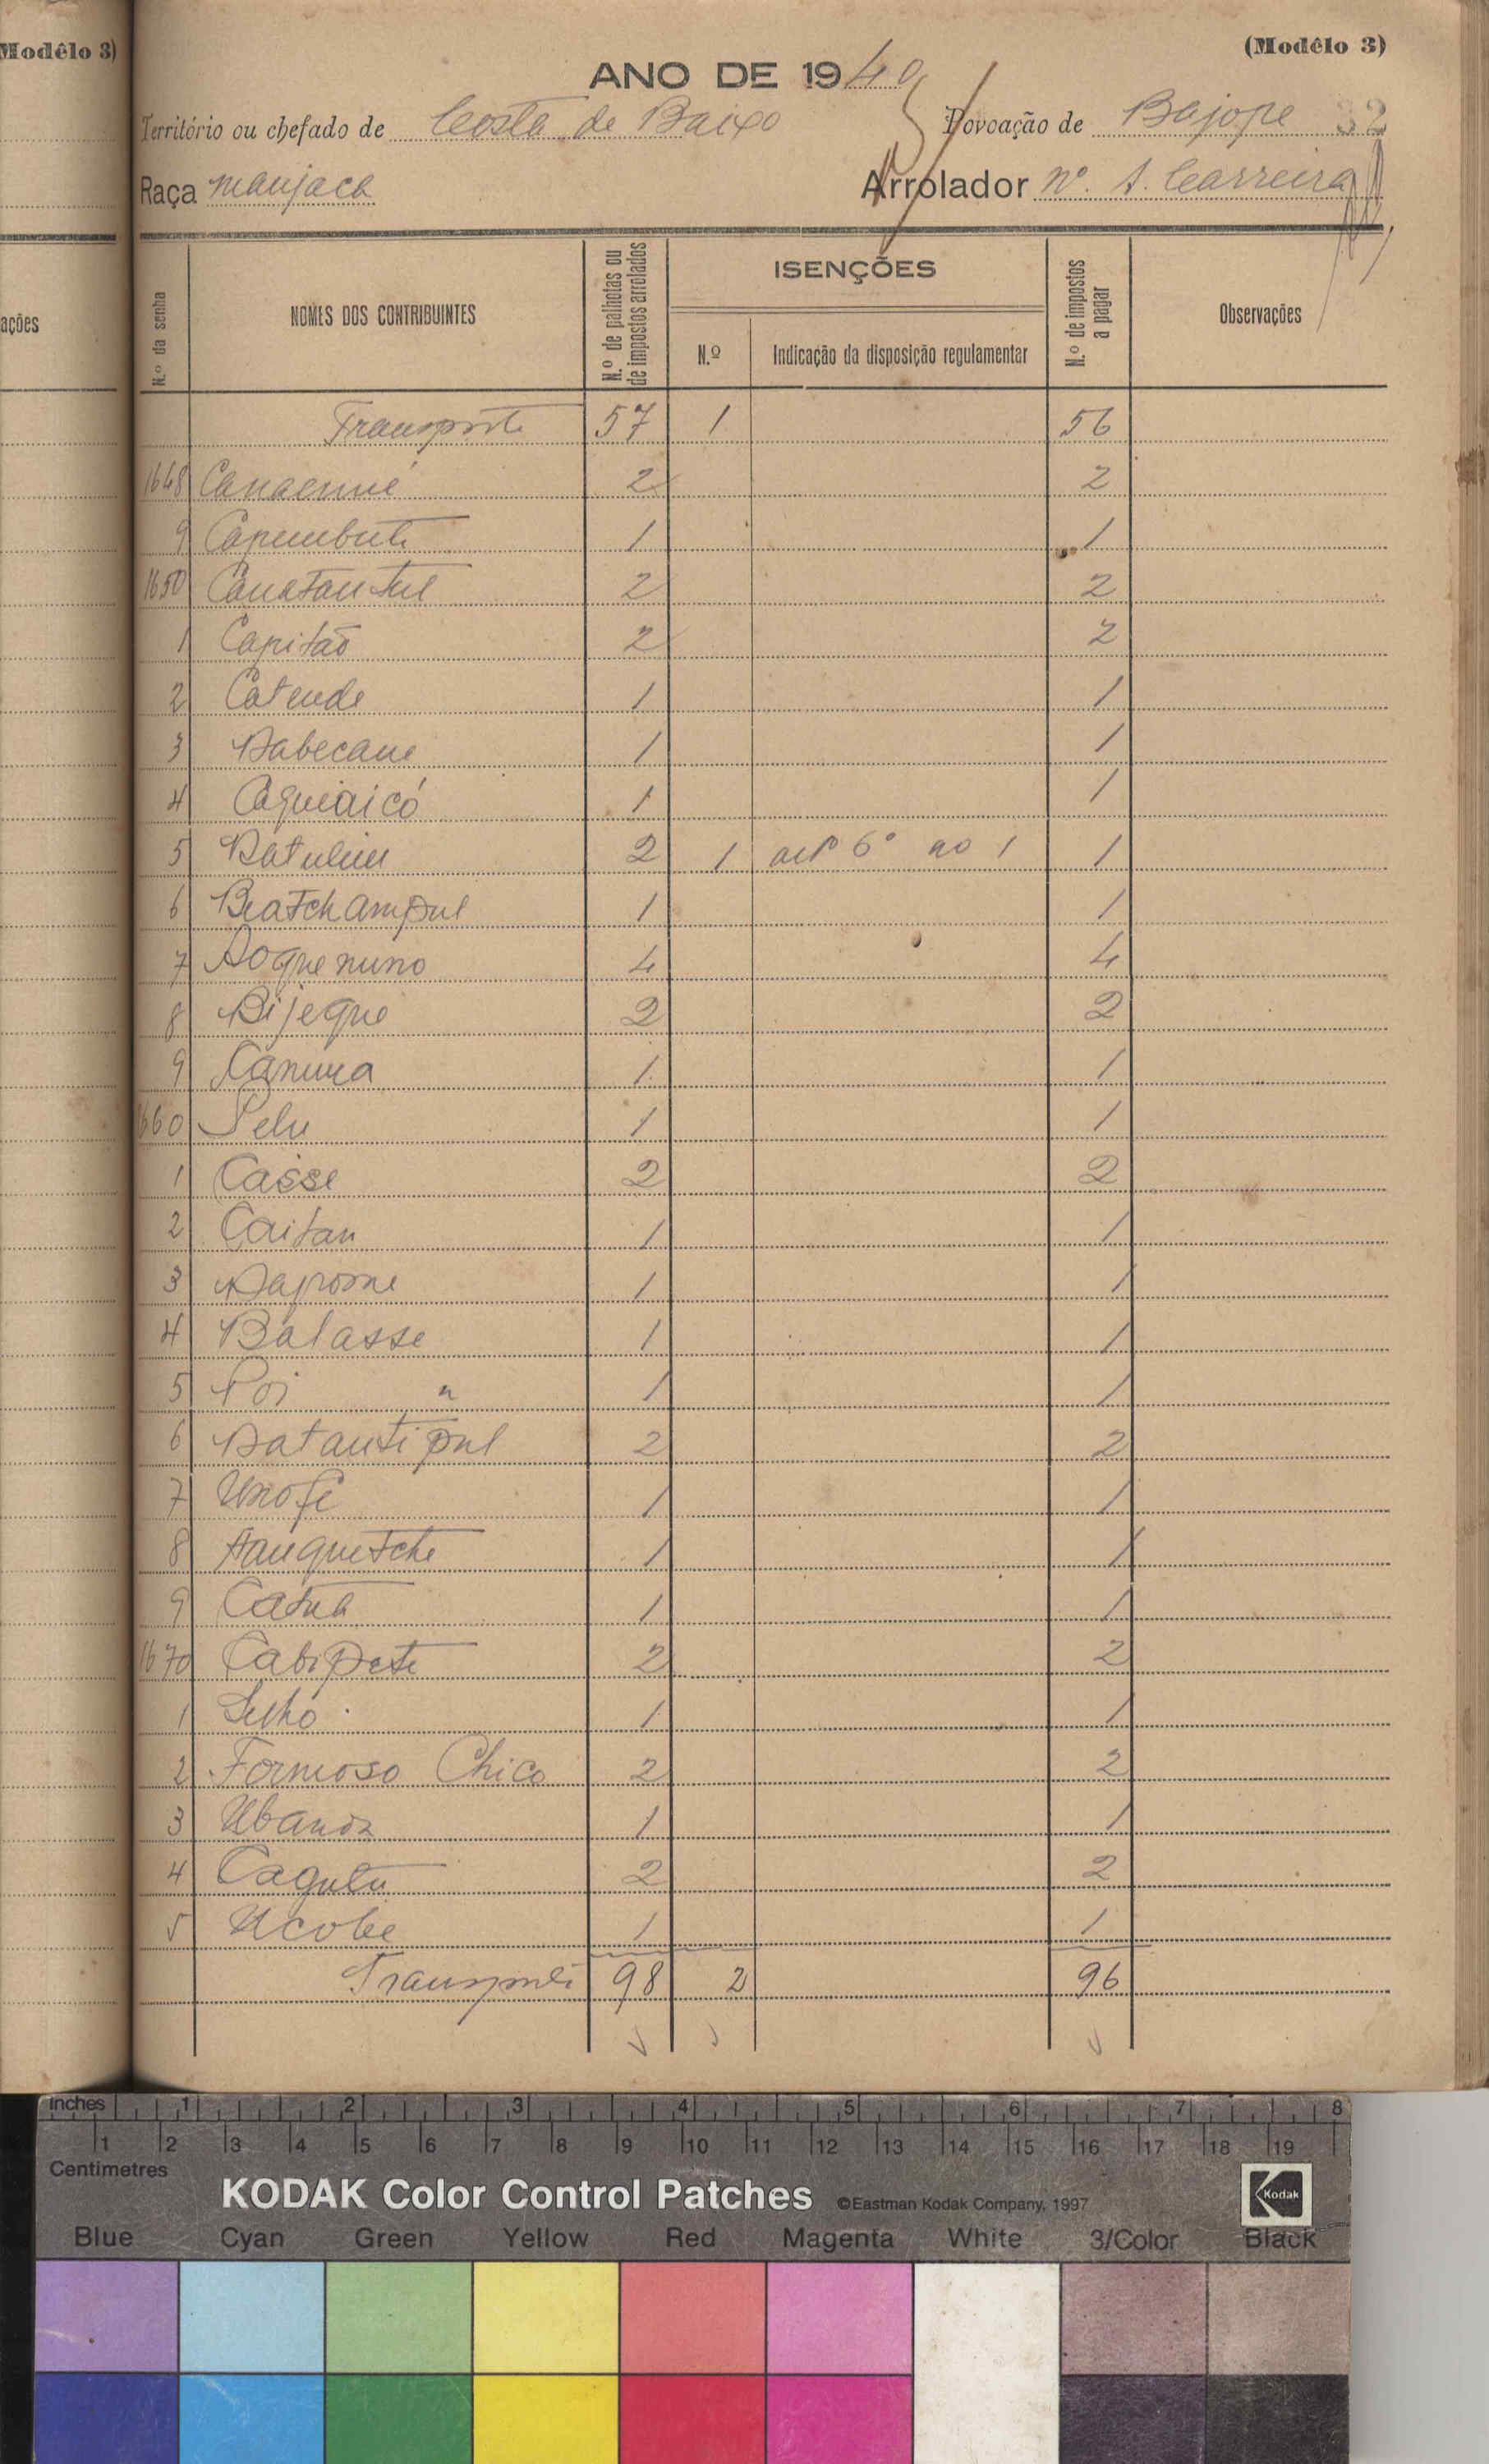 Modêlo 3)
(Modêlo 3)
ANO DE 1940
Território ou chefado de Costa de Baixo Povoação de Bajope 32
Raça manjaca Arrolador nº. A. Carreira
ações
N.º da senha NOMES DOS CONTRIBUINTES N.º de palhotas ou de impostos arrolados ISENÇÕES N.º de impostos a pagar Observações
N.º Indicação da disposição regulamentar
Transporte 57 1 56
1648 2 2
9 Capumbuti 1 1
1650 2 2
1 Capitão 2 2
2 Catende 1 1
3 Dabecane 1 1
4 Caquiaicó 1 1
5 2 1 6º no 1 1
6 Beatchampul 1 1
7 4 4
8 Bijeque 2 2
9 Canura 1 1
1660 Pelu 1 1
1 Casse 2 2
2 Caitan 1 1
3 1 1
4 Balasse 1 1
5 Poi " 1 1
6 Datantipul 2 2
7 1 1
8 1 1
9 Catua 1 1
1670 Cabipete 2 2
1 1 1
2 Formoso Chico 2 2
3 1 1
4 Cagutu 2 2
5 Ucobe 1 1
Transporte 98 2 96
Inches 1 2 3 4 5 6 7 8
1 2 3 4 5 6 7 8 9 10 11 12 13 14 15 16 17 18 19
Centimetres
KODAK Color Control Patches ©Eastman Kodak Company, 1997 Kodak
Blue Cyan Green Yellow Red Magenta White 3/Color Black